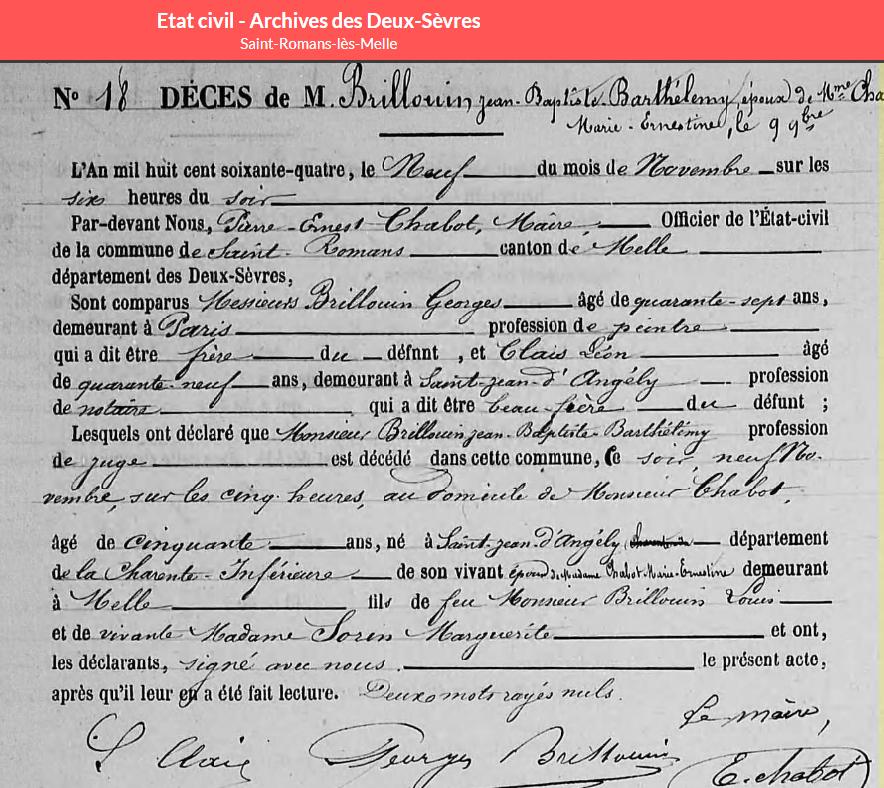 Etat civil - Archives des Deux-Sèvres
Saint-Romans-lès-Melle
No 18 DÉCES de M. Brillouin jean-Baptiste-Barthélemy, époux de Mme Cha
Marie-Ernestine, le 9 9bre
L'An mil huit cent soixante-quatre, le Neuf du mois de Novembre sur les
six heures du soir
Par-devant Nous, Pierre-Ernest Chabot, Maire, Officier de l'État-civil
de la commune de Saint-Romans canton de Melle
département des Deux-Sèvres,
Sont comparus Messieurs Brillouin Georges âgé de quarante-sept ans,
demeurant à Paris profession de peintre
qui a dit être frère du défunt , et Clais Léon âgé
de quarante-neuf ans, demeurant à Saint-jean-d'Angély profession
de notaire qui a dit être beau-frère du défunt ;
Lesquels ont déclaré que Monsieur Brillouin jean-Baptiste-Barthélémy profession
de juge est décédé dans cette commune, Ce soir, neuf No-
vembre, sur les cinq heures, au domicile de Monsieur Chabot,
âgé de cinquante ans, né à Saint-jean-d'Angély département
de la Charente-Inférieure de son vivant époux de Madame Chabot Marie-Ernestine demeurant
à Melle fils de feu Monsieur Brillouin Louis
et de vivante Madame Sorin Marguerite et ont,
les déclarants, signé avec nous. le présent acte,
après qu'il leur en a été fait lecture. Deux mots rayés nuls.
Le maire,
L Clais Georges Brillouin E. Chabot